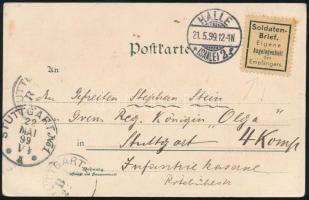 HALLE
21.5.99.12-1N
(SAALE) 2
Soldaten-
Brief.
Eigene
Angelegenheit
des
Empfängers.
Postkarte
An
den Gefreiten Stephan Stein
Gren. Reg. Königin Olga
in Stuttgart 4 Komp
Infanterie kaserne
Rotebühlstr
STUTTGART No 1
22
MAI
99